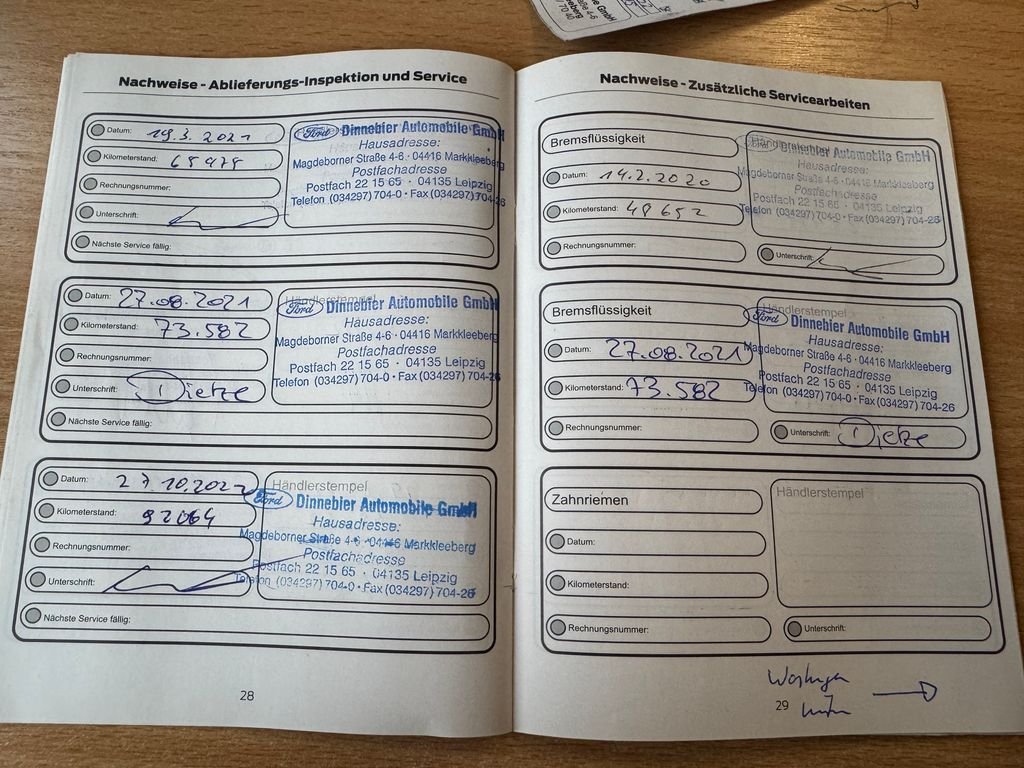 Nachweise - Ablieferungs-Inspektion und Service
Datum: 19.3.2021
Kilometerstand: 65975
Rechnungsnummer:
Unterschrift:
Nächste Service fällig:
Ford Dinnebier Automobile GmbH
Hausadresse:
Magdeborner Straße 4-6 · 04416 Markkleeberg
Postfachadresse
Postfach 22 15 65 · 04135 Leipzig
Telefon (034297) 704-0 · Fax (034297) 704-26
Datum: 27.08.2021
Kilometerstand: 73.582
Rechnungsnummer:
Unterschrift: Dietze
Nächste Service fällig:
Händlerstempel
Ford Dinnebier Automobile GmbH
Hausadresse:
Magdeborner Straße 4-6 · 04416 Markkleeberg
Postfachadresse
Postfach 22 15 65 · 04135 Leipzig
Telefon (034297) 704-0 · Fax (034297) 704-26
Datum: 27.10.2022
Kilometerstand: 92064
Rechnungsnummer:
Unterschrift:
Nächste Service fällig:
Händlerstempel
Ford Dinnebier Automobile GmbH
Hausadresse:
Magdeborner Straße 4-6 · 04416 Markkleeberg
Postfachadresse
Postfach 22 15 65 · 04135 Leipzig
Telefon (034297) 704-0 · Fax (034297) 704-26
28
Nachweise - Zusätzliche Servicearbeiten
Bremsflüssigkeit
Datum: 14.2.2020
Kilometerstand: 48652
Rechnungsnummer:
Händlerstempel
Ford Dinnebier Automobile GmbH
Hausadresse:
Magdeborner Straße 4-6 · 04416 Markkleeberg
Postfachadresse
Postfach 22 15 65 · 04135 Leipzig
Telefon (034297) 704-0 · Fax (034297) 704-26
Unterschrift:
Bremsflüssigkeit
Datum: 27.08.2021
Kilometerstand: 73.582
Rechnungsnummer:
Händlerstempel
Ford Dinnebier Automobile GmbH
Hausadresse:
Magdeborner Straße 4-6 · 04416 Markkleeberg
Postfachadresse
Postfach 22 15 65 · 04135 Leipzig
Telefon (034297) 704-0 · Fax (034297) 704-26
Unterschrift: Dietze
Zahnriemen
Datum:
Kilometerstand:
Rechnungsnummer:
Händlerstempel
Unterschrift:
29